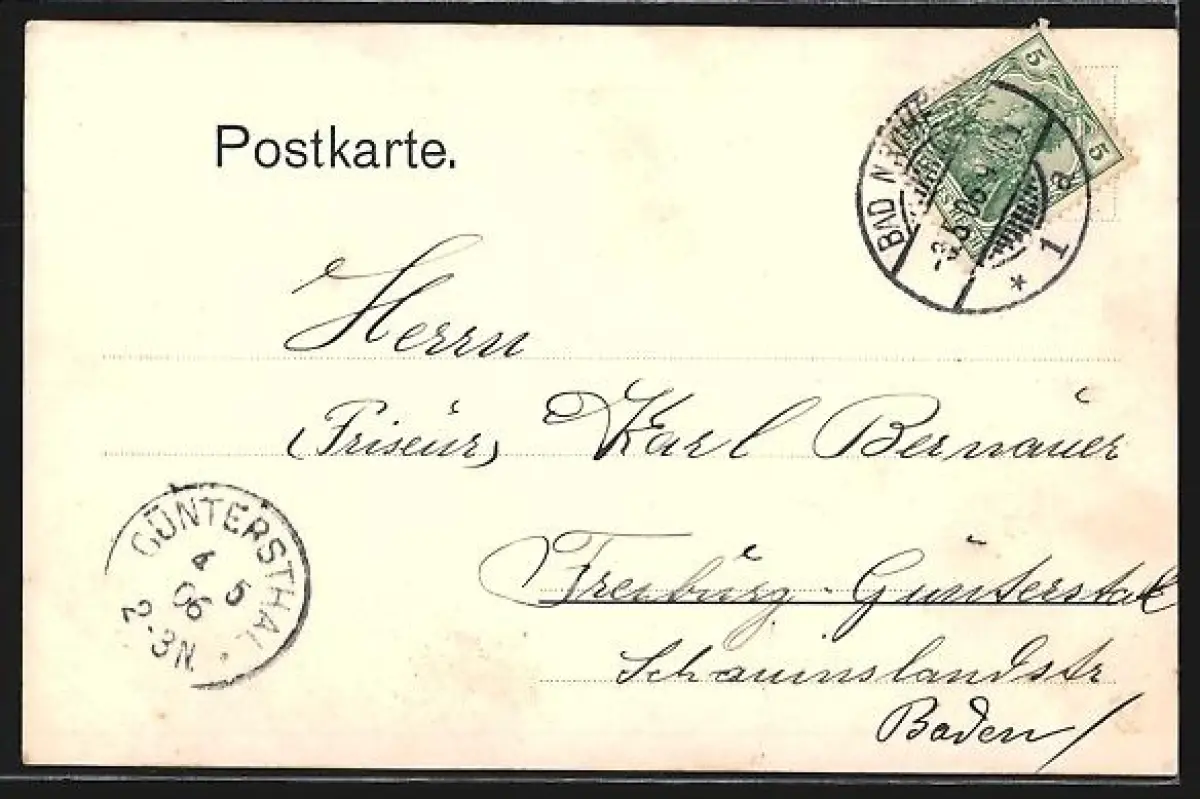 Postkarte.
5
5
BAD
-3.5.06.
* 1 a
Herrn
(Friseur) Karl Bernauer
Freiburg-Günterstal
Schauinslandstr
Baden/
GÜNTERSTHAL
4 5
06
2-3N.